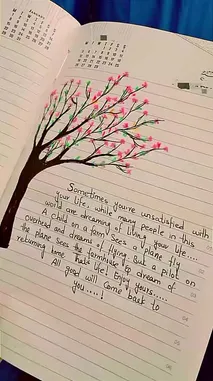 Sometimes you're unsatisfied with
your life, while many people in this
world are dreaming of living your life....
A child on a farm sees a plane fly
overhead and dreams of flying. But a pilot on
the plane sees the farmhouse & dream of
returning home. That's life! Enjoy yours.....
All good will come back to
you.....!